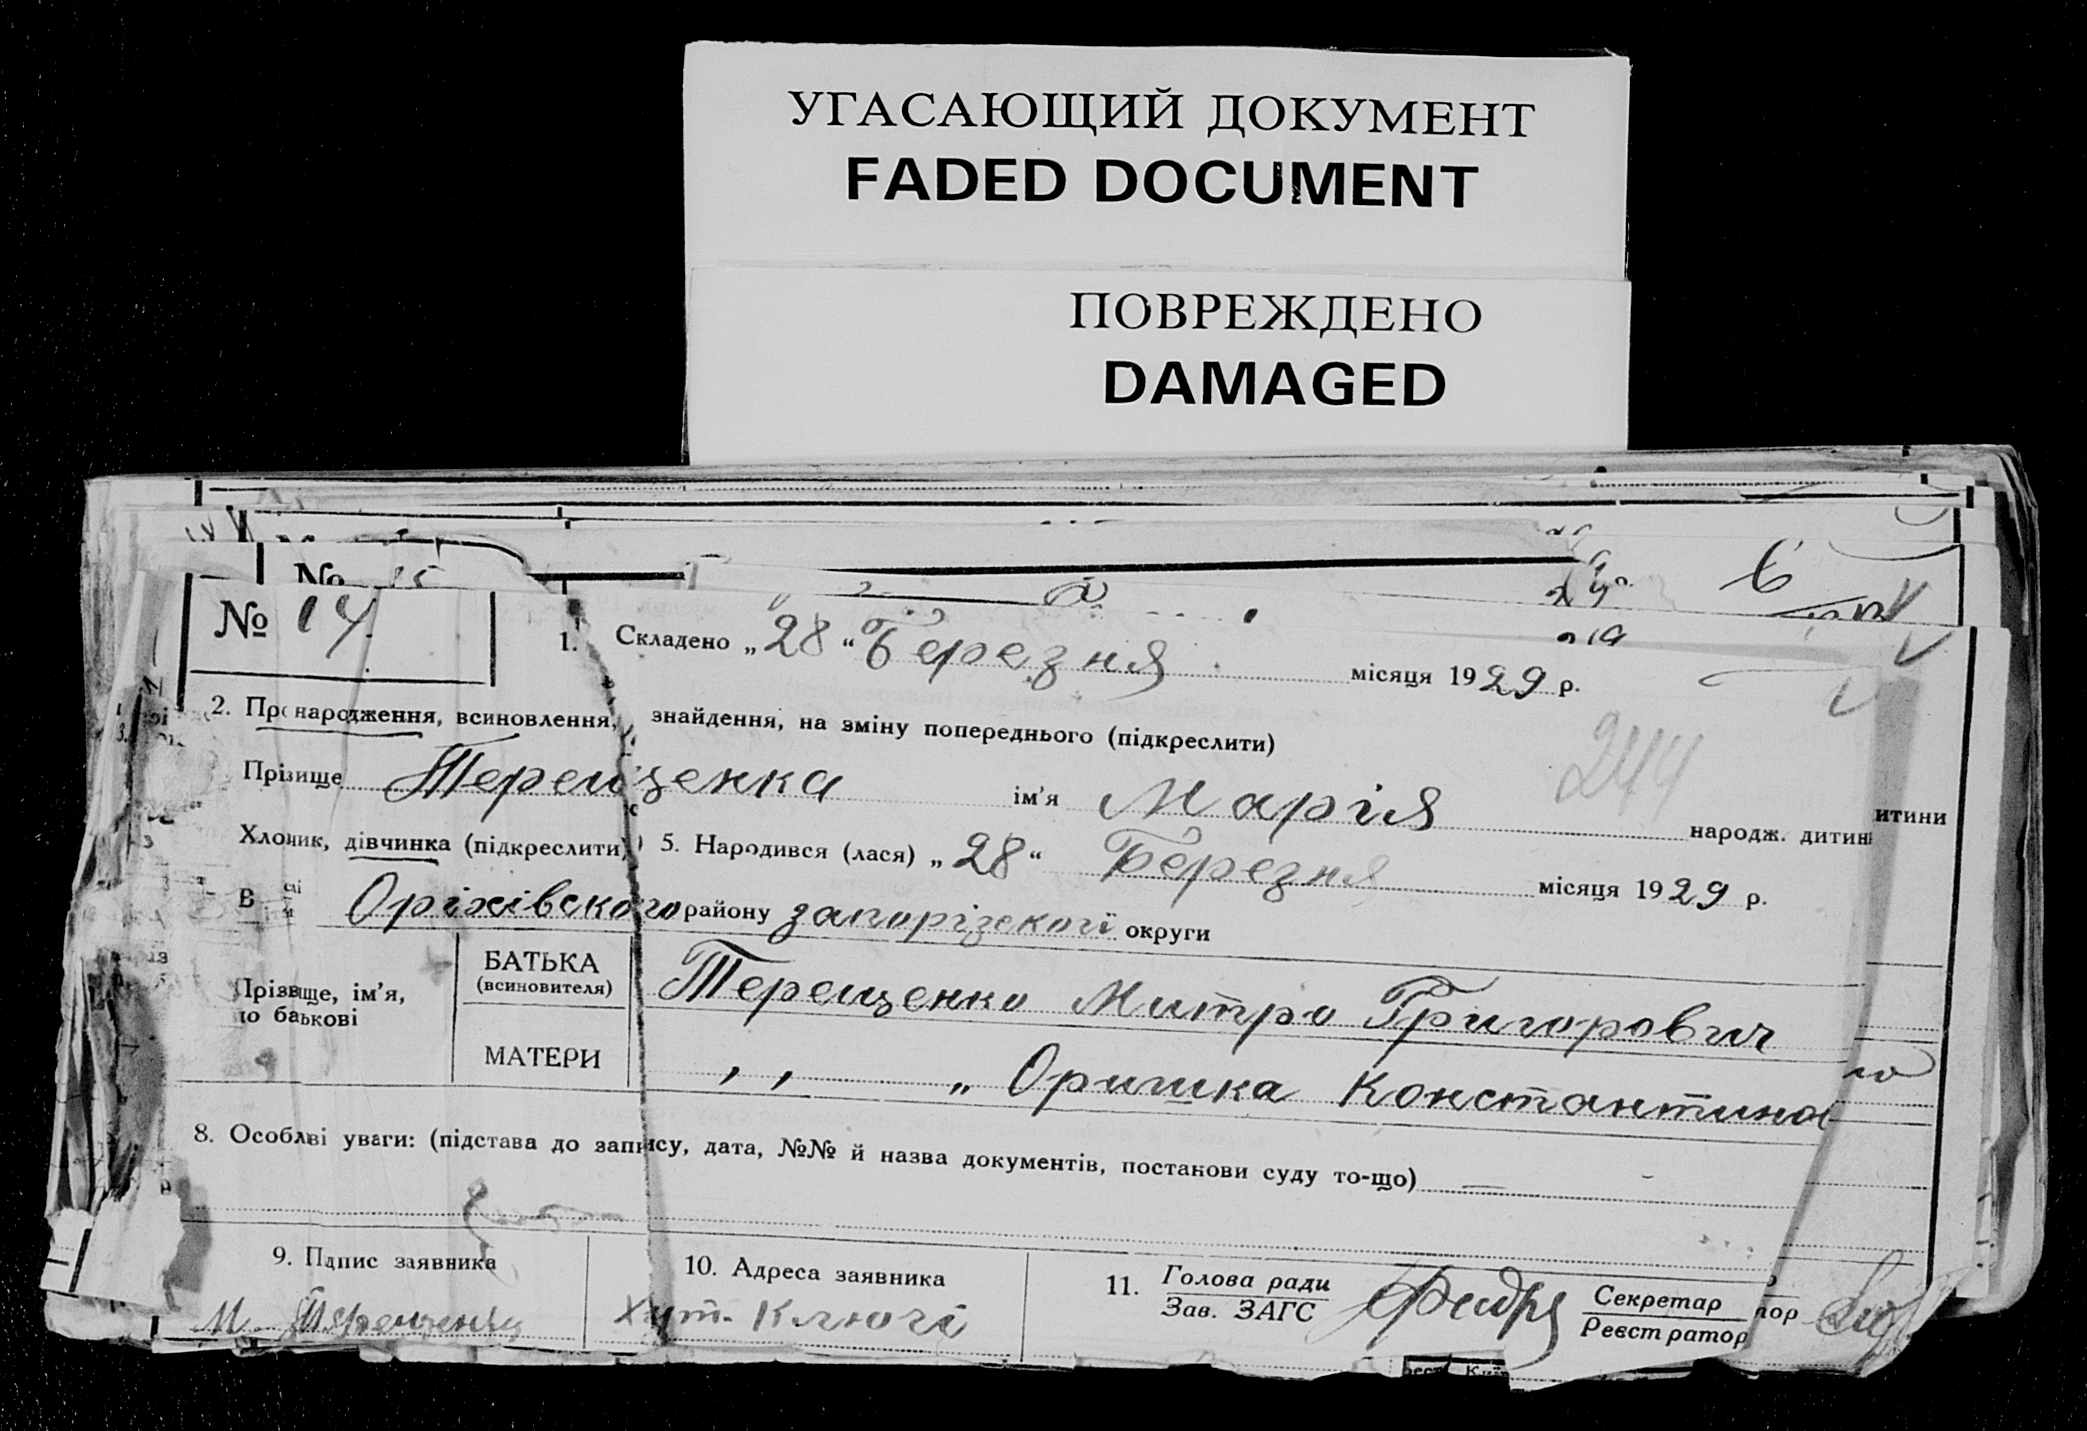 УГАСАЮЩИЙ ДОКУМЕНТ
FADED DOCUMENT
ПОВРЕЖДЕНО
DAMAGED
№ 15
6
№ 14
1. Складено „28“ Березня місяця 1929 р.
2. Про народження, всиновлення, знайдення, на зміну попереднього (підкреслити)
244
Прізвище Терещенка ім'я Марія народж. дитини
итини
Хлопчик, дівчинка (підкреслити) 5. Народився (лася) „28“ Березня місяця 1929 р.
В Оріхівского району запорізскої округи
Прізвище, ім'я, по батькові
БАТЬКА (всиновителя) Терещенко Митро Григорович
МАТЕРИ „ „ Оришка Константинов
8. Особливі уваги: (підстава до запису, дата, №№ й назва документів, постанови суду то-що) —
9. Підпис заявника
М. Терещенко
10. Адреса заявника
Хут. Ключі
11. Голова ради
Зав. ЗАГС
Секретар
Реєстратор